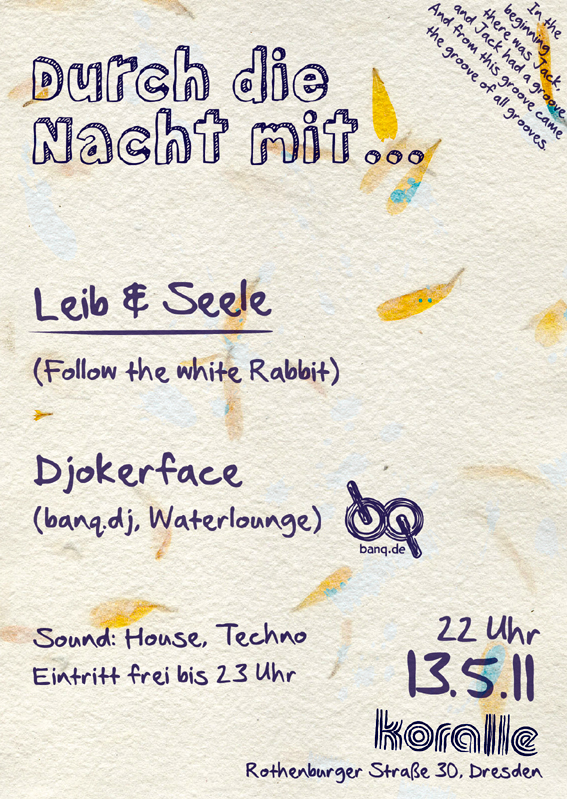 In the
beginning,
there was Jack.
and Jack had a groove.
And from this groove came
the groove of all grooves.
Durch die
Nacht mit...
Leib & Seele
(Follow the white Rabbit)
Djokerface
(banq.dj, Waterlounge)
bq
banq.de
Sound: House, Techno
Eintritt frei bis 23 Uhr
22 Uhr
13.5.11
koralle
Rothenburger Straße 30, Dresden